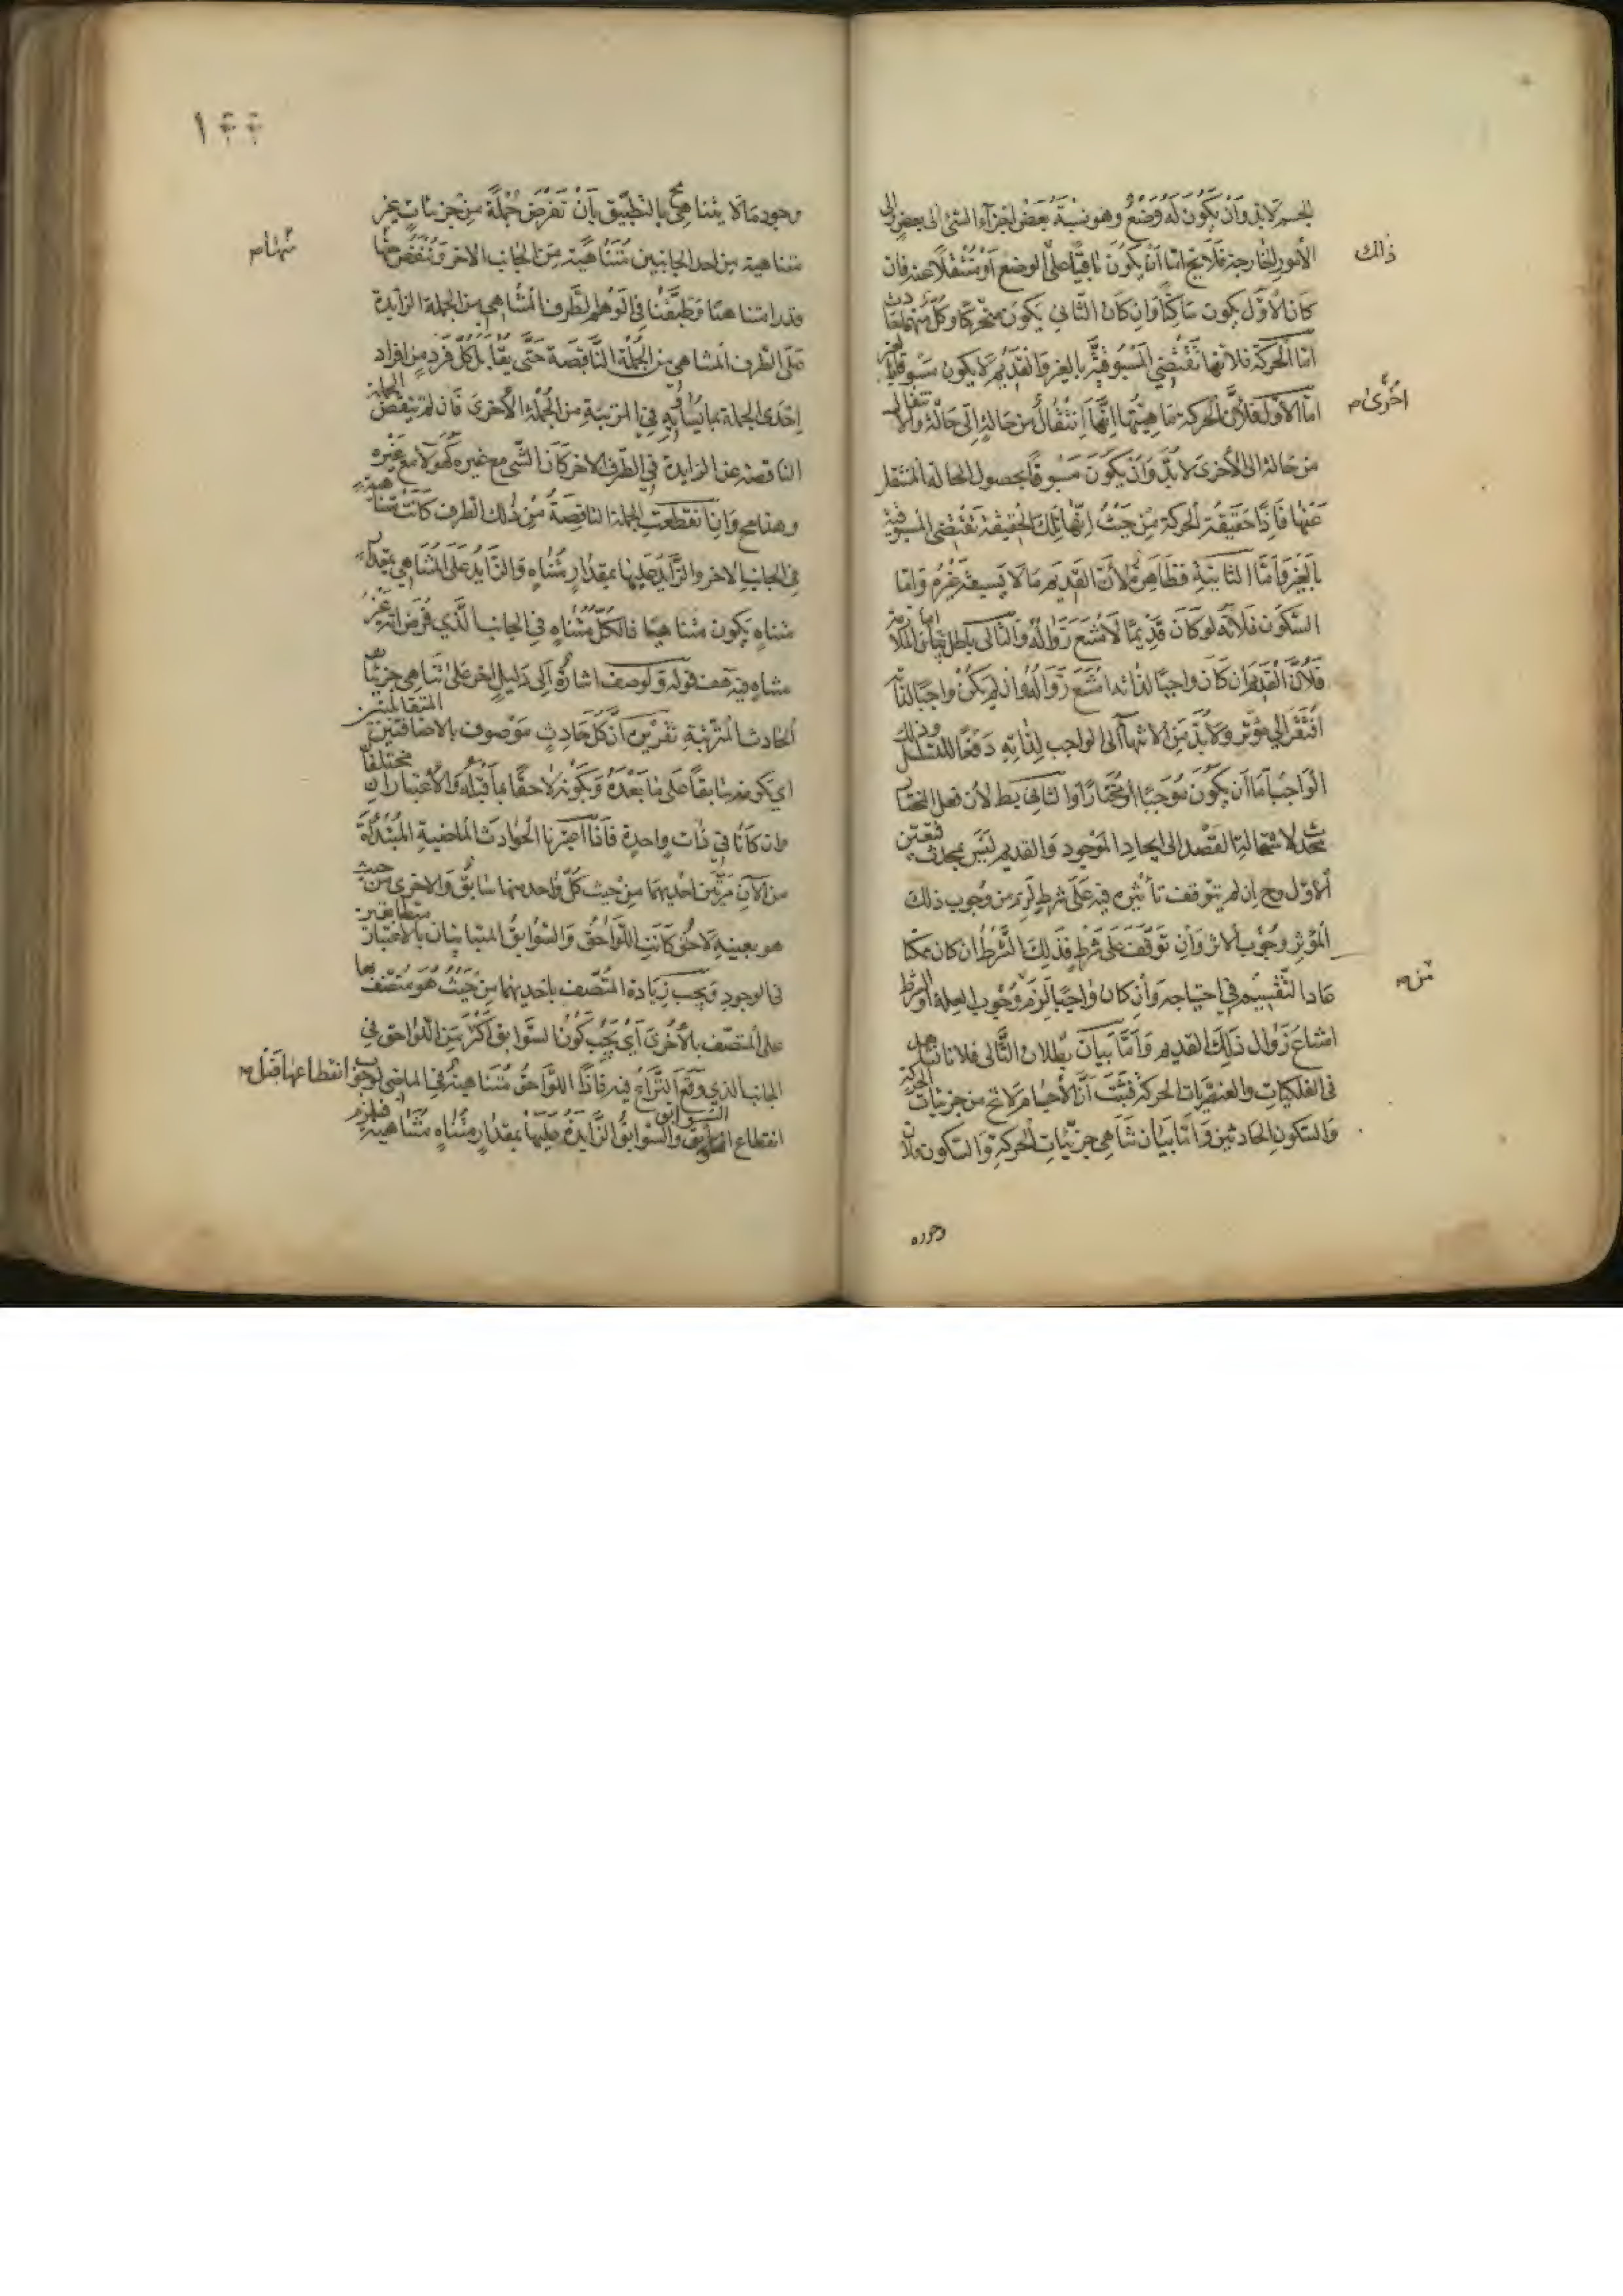 الجسم لا بد وان يكون له وضع وهو نسبة بعض اجزاء الشئ الى بعض والى
الأمور الخارجة فلا يخ اما ان يكون باقيا على الوضع او منتقلا عنه فان
ذالك
كان الأول يكون ساكنا وان كان الثاني يكون متحركا وكل منهما حادث
اما الحركة فلانها تقتضي المسبوقية بالغير والقديم لا يكون مسبوقا بالغير
اما الأول فلأن الحركة ماهيتها انها انتقال من حالة الى حالة والانتقال
اخرى صم
من حالة الى الأخرى لا بد وان يكون مسبوقا بحصول الحالة المنتقل
عنها فاذا حقيقة الحركة من حيث انها تلك الحقيقة تقتضي المسبوقية
بالغير واما الثانية فظاهرة لأن القديم ما لا يسبقه غيره واما
السكون فلأنه لو كان قديما لامتنع زواله والتالي باطل بيان الملازمة
فلأن القديم ان كان واجبا لذاته امتنع زواله وان لم يكن واجبا لذاته
افتقر الى مؤثر ولا بد من الانتهاء الى الواجب لذاته دفعا للتسلسل وذلك
الواجب اما ان يكون موجبا او مختارا والثاني بط لأن فعل المختار
محدث لاستحالة القصد الى ايجاد الموجود والقديم ليس بمحدث فتعين
الأول وح ان لم يتوقف تأثيره فيه على شرط لزم من وجوب ذلك
المؤثر وجوب الاثر وان توقف على شرط فذلك الشرط ان كان ممكنا
عاد التقسيم في احتياجه وان كان واجبا لزم وجوب العلة والشرط
من صم
امتناع زوال ذلك القديم واما بيان بطلان التالي فلانا نشاهد
في الفلكيات والعنصريات الحركة فثبت ان الأجسام لا تخ من جزئيات الحركة
والسكون الحادثين واما بيان تناهي جزئيات الحركة والسكون فلان
وجوده
١٤٤
وجود ما لا يتناهى مح بالتطبيق بان تفرض جملة من جزئيات غير
متناهية من احد الجانبين متناهية من الجانب الاخر وننقص منها
منها صم
قدرا متناهيا وطبقنا في الوهم الطرف المتناهي من الجملة الزايدة
على الطرف المتناهي من الجملة الناقصة حتى يقابل كل فرد من افراد
احدى الجملة بما يساويه في المرتبة من الجملة الأخرى فان لم ينقص الجملة
الناقصة عن الزايدة في الطرف الاخر كان الشئ مع غيره كهو لا مع غيره
وهذا مح وان انقطعت الجملة الناقصة من ذلك الطرف كانت متناهية
في الجانب الاخر والزايد عليها بمقدار متناه والزايد على المتناهي بمقدار
متناه يكون متناهيا فالكل متناه في الجانب الذي فرض انه غير
متناه فيه هف قوله ولوصف اشارة الى دليل اخر على تناهي جزئيات
الحادث المترتبة تقريره ان كل حادث موصوف بالاضافتين المتقابلتين
اي بكونه سابقا على ما بعده وبكونه لاحقا بما قبله والاعتباران مختلفان
وان كانا في ذات واحدة فاذا اعتبرنا الحوادث الماضية المبتدأة
من الآن مرتين احديهما من حيث كل واحد منها سابق والاخرى من حيث
هو بعينه لاحق كانت اللواحق والسوابق المتباينان بالاعتبار متطابقين
في الوجود ويجب زيادة المتصف باحديهما من حيث هو متصف بها
على المتصف بالأخرى اي يجب كون السوابق اكثر من اللواحق في
الجانب الذي وقع النزاع فيه فاذا اللواحق متناهية في الماضي لوجوب انقطاعها قبل صم
انقطاع السوابق والسوابق الزايدة عليها بمقدار متناه متناهية فيلزم